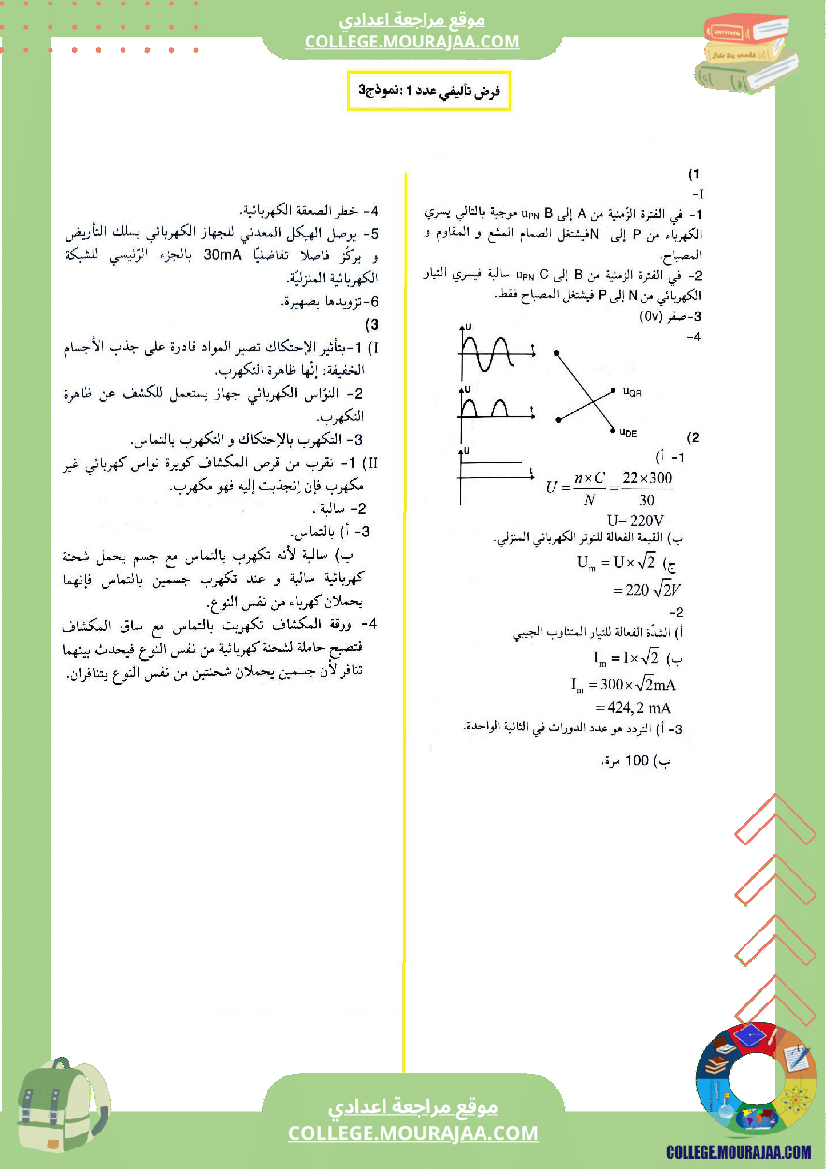 موقع مراجعة اعدادي
COLLEGE.MOURAJAA.COM
فرض تأليفي عدد 1 :نموذج3
1)
I-
1- في الفترة الزّمنية من A إلى B uPN موجبة بالتالي يسري
الكهرباء من P إلى N فيشتغل الصمام المشع و المقاوم و
المصباح.
2- في الفترة الزمنية من B إلى C uPN سالبة فيسري التيار
الكهربائي من N إلى P فيشتغل المصباح فقط.
3-صفر (0v)
4-
u
t
u
t
u
t
uQR
uDE
2)
1- أ)
U = n×C / N = 22×300 / 30
U= 220V
ب) القيمة الفعالة للتوتر الكهربائي المنزلي.
ج) Um = U×√2
= 220 √2V
2-
أ) الشدّة الفعالة للتيار المتناوب الجيبي
ب) Im = I×√2
Im = 300×√2mA
= 424,2 mA
3- أ) التردد هو عدد الدورات في الثانية الواحدة.
ب) 100 مرة.
4- خطر الصعقة الكهربائية.
5- يوصل الهيكل المعدني للجهاز الكهربائي بسلك التأريض
و يركّز فاصلا تفاضليّا 30mA بالجزء الرّئيسي للشبكة
الكهربائية المنزليّة.
6-تزويدها بصهيرة.
3)
I) 1-بتأثير الإحتكاك تصير المواد قادرة على جذب الأجسام
الخفيفة: إنّها ظاهرة التكهرب.
2- النوّاس الكهربائي جهاز يستعمل للكشف عن ظاهرة
التكهرب.
3- التكهرب بالإحتكاك و التكهرب بالتماس.
II) 1- نقرب من قرص المكشاف كويرة نواس كهربائي غير
مكهرب فإن إنجذبت إليه فهو مكهرب.
2- سالبة .
3- أ) بالتماس.
ب) سالبة لأنه تكهرب بالتماس مع جسم يحمل شحنة
كهربائية سالبة و عند تكهرب جسمين بالتماس فإنهما
يحملان كهرباء من نفس النوع.
4- ورقة المكشاف تكهربت بالتماس مع ساق المكشاف
فتصبح حاملة لشحنة كهربائية من نفس النوع فيحدث بينهما
تنافر لأن جسمين يحملان شحنتين من نفس النوع يتنافران.
موقع مراجعة اعدادي
COLLEGE.MOURAJAA.COM
COLLEGE.MOURAJAA.COM